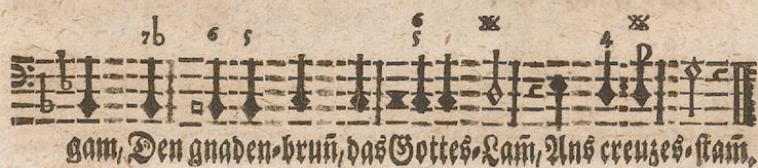 7b 6 5 6 4
5
gam, Den gnaden-brun̄, das Gottes-Lam̄, Ans creuzes-stam̄,